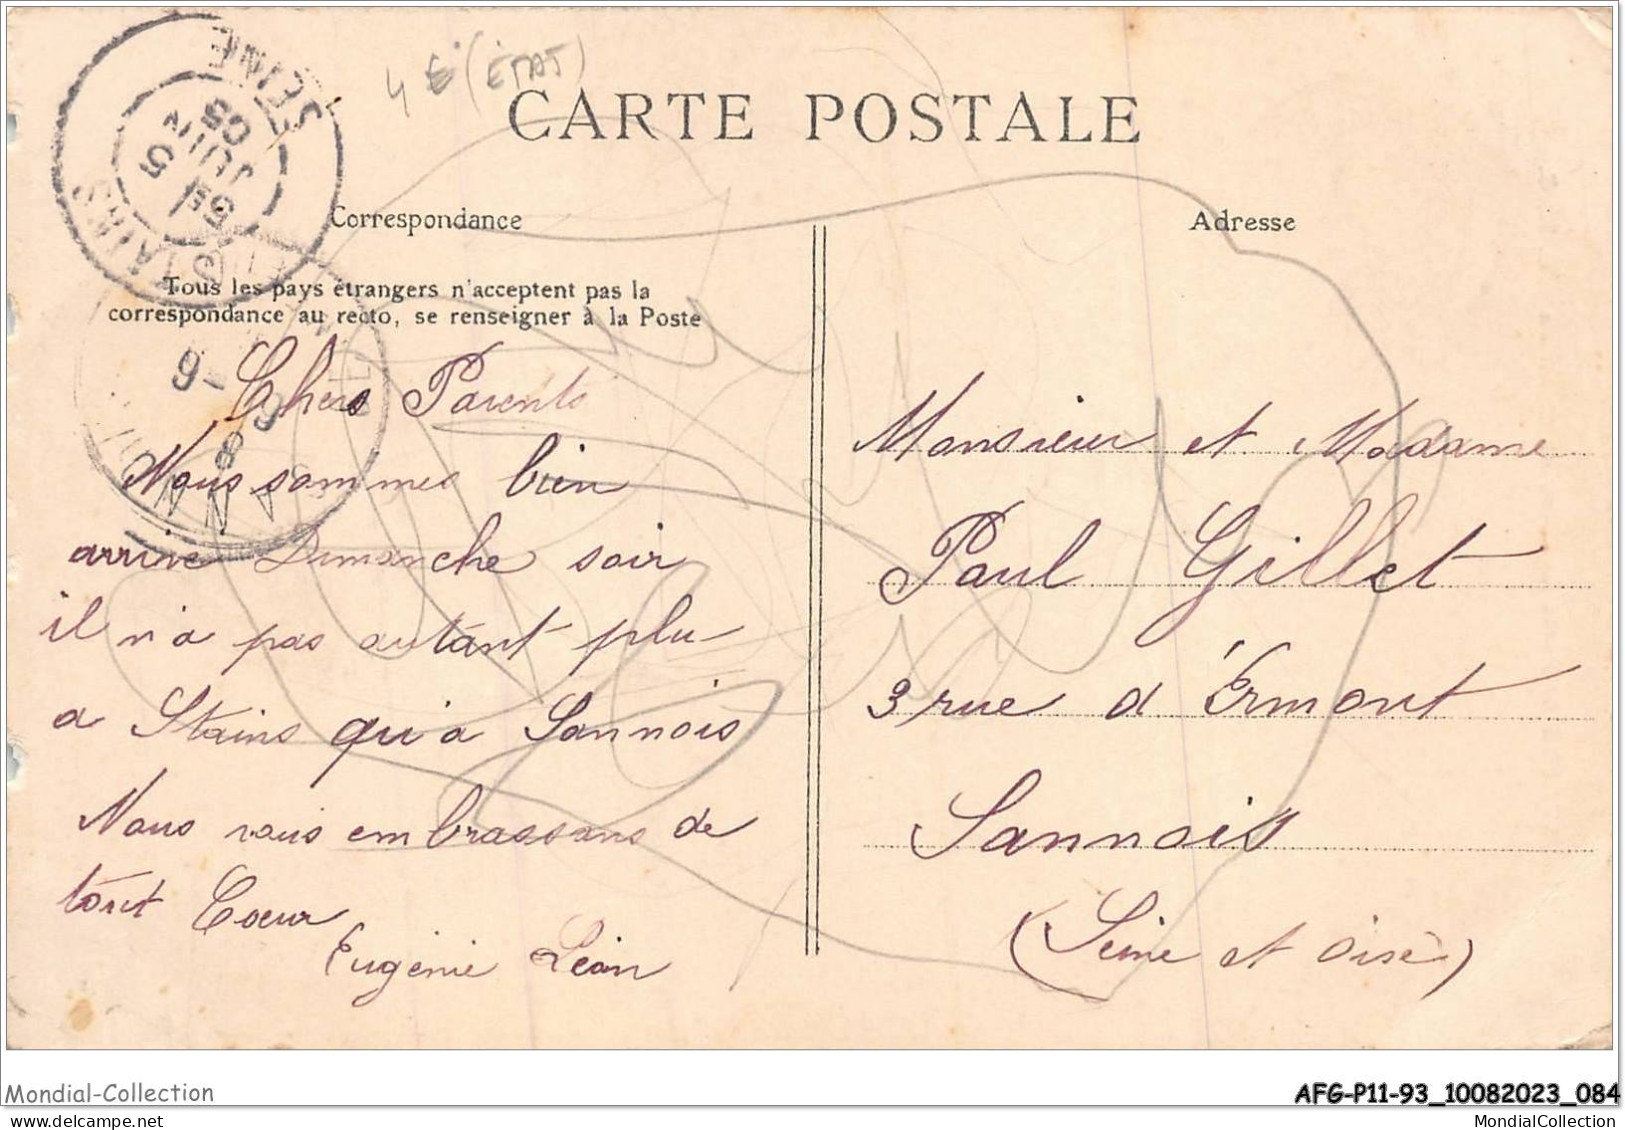 4 € (ETAT)
CARTE POSTALE
STAINS
SEINE
5
JUIN
05
Correspondance
Adresse
Tous les pays étrangers n'acceptent pas la
correspondance au recto, se renseigner à la Poste
Chers Parents
Nous sommes bien
arrive Dimanche soir
il n'a pas autant plu
a Stains qu'a Sannois
Nous vous embrassons de
tout Cœur
Eugénie Léon
Monsieur et Madame
Paul Gillet
3 rue d'Ermont
Sannois
(Seine et Oise)
Mondial-Collection
AFG-P11-93_10082023_084
MondialCollection
MondialCollection